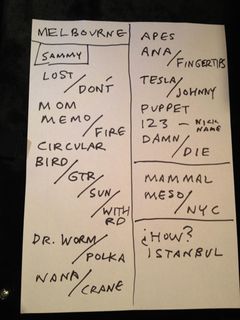 MELBOURNE
SAMMY
LOST/
DON'T
MOM
MEMO/
FIRE
CIRCULAR
BIRD/
GTR/
SUN/
WITH
RD
DR. WORM/
POLKA
NANA/
CRANE
APES
ANA/
FINGERTIPS
TESLA/
JOHNNY
PUPPET
123 - NICK
NAME
DAMN/
DIE
MAMMAL
MESO/
NYC
¿HOW?
ISTANBUL